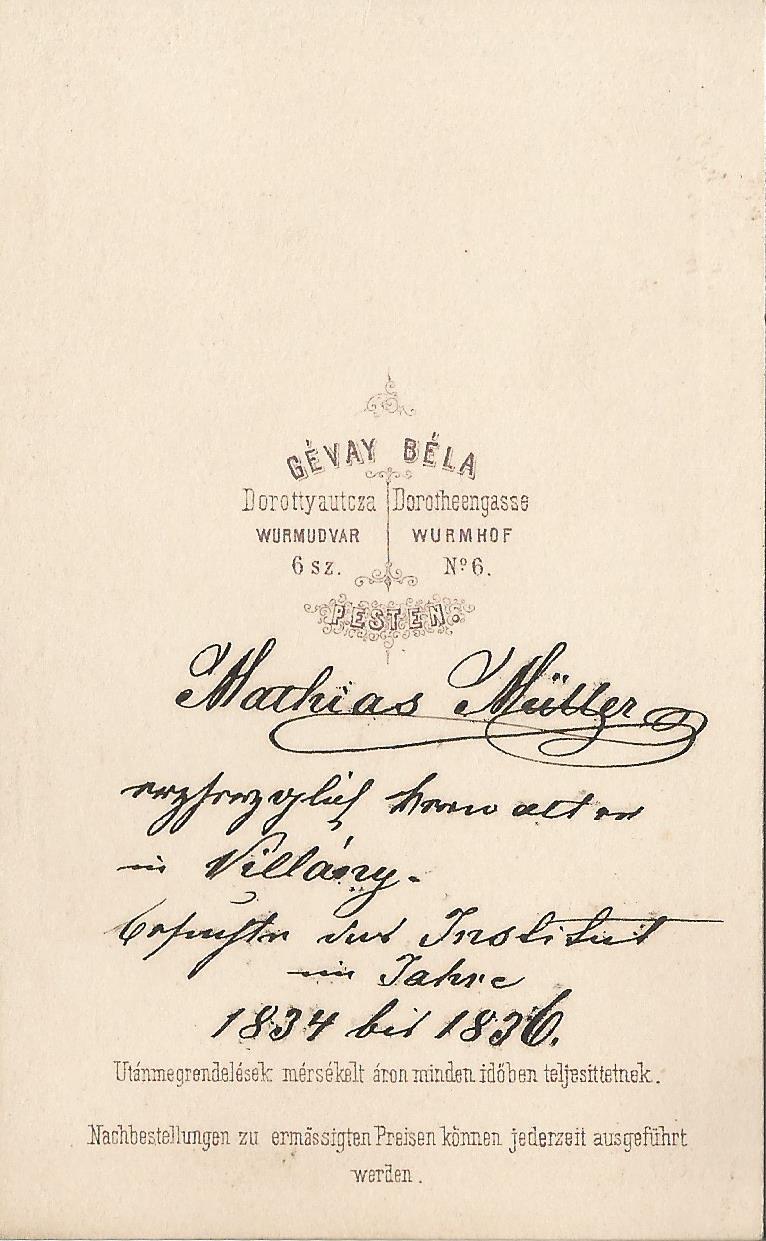 GÉVAY BÉLA
Dorottyautcza Dorotheengasse
WURMUDVAR WURMHOF
6 sz. Nº 6.
PESTEN.
Mathias Müller
erzherzoglich Verwalter
in Villány.
besuchte das Institut
im Jahre
1834 bis 1836.
Utánmegrendelések mérsékelt áron minden időben teljesittetnek.
Nachbestellungen zu ermässigten Preisen können jederzeit ausgeführt
werden.